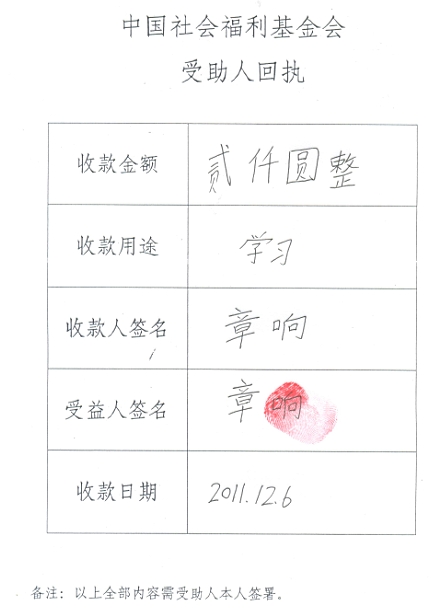 中国社会福利基金会
受助人回执
收款金额 贰仟圆整
收款用途 学习
收款人签名 章响
受益人签名 章响
收款日期 2011.12.6
备注：以上全部内容需受助人本人签署。